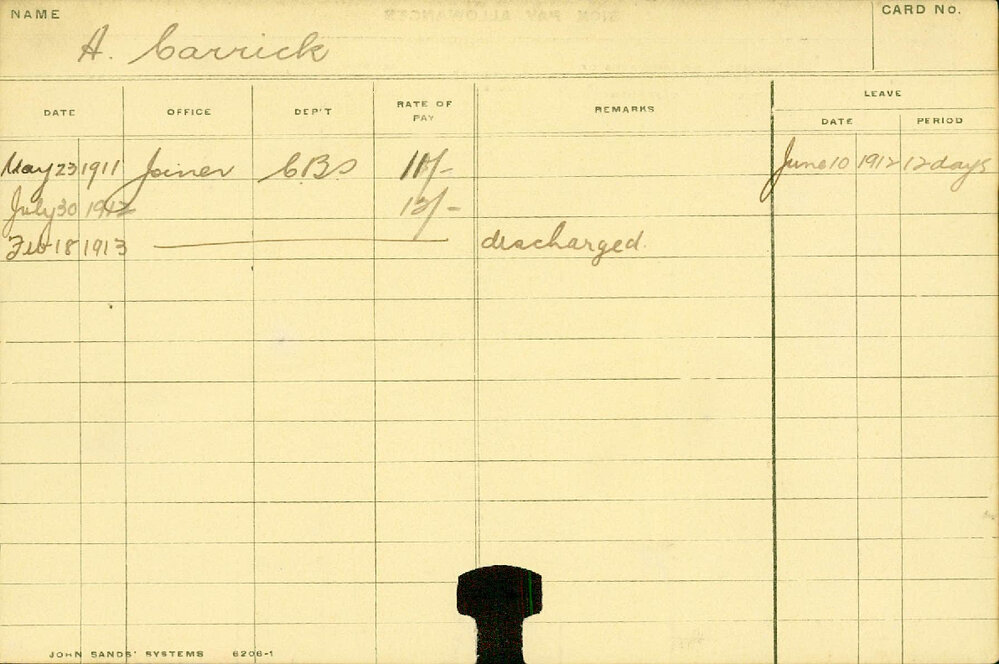 NAME CARD No.
A. Carrick
LEAVE
DATE OFFICE DEP'T RATE OF PAY REMARKS DATE PERIOD
May 23 1911 Joiner CBS 11/- June 10 1912 12 days
July 30 1912 12/-
Feb 18 1913 discharged.
JOHN SANDS' SYSTEMS 6206-1